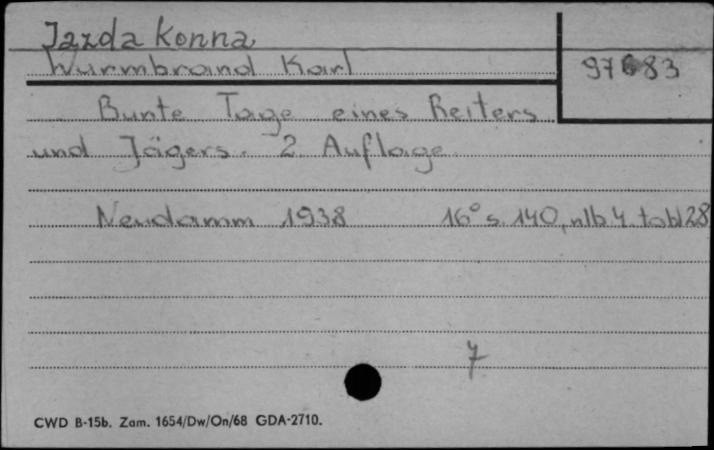 Jazda konna
Wurmbrand Karl
97683
Bunte Tage eines Reiters
und Jägers. 2 Auflage
Neudamm 1938 16° s. 140, nlb 4. tabl 28
7
CWD B-15b. Zam. 1654/Dw/On/68 GDA-2710.